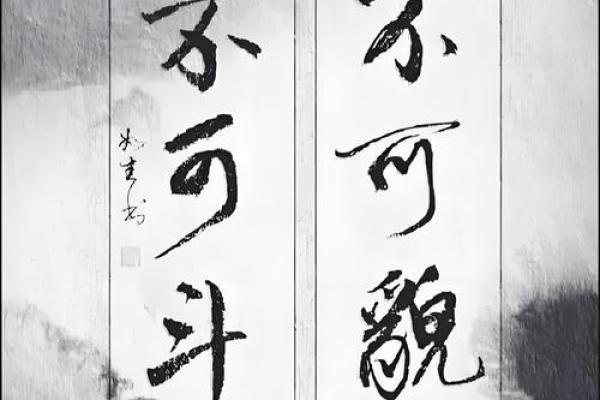 不可貌
不可斗